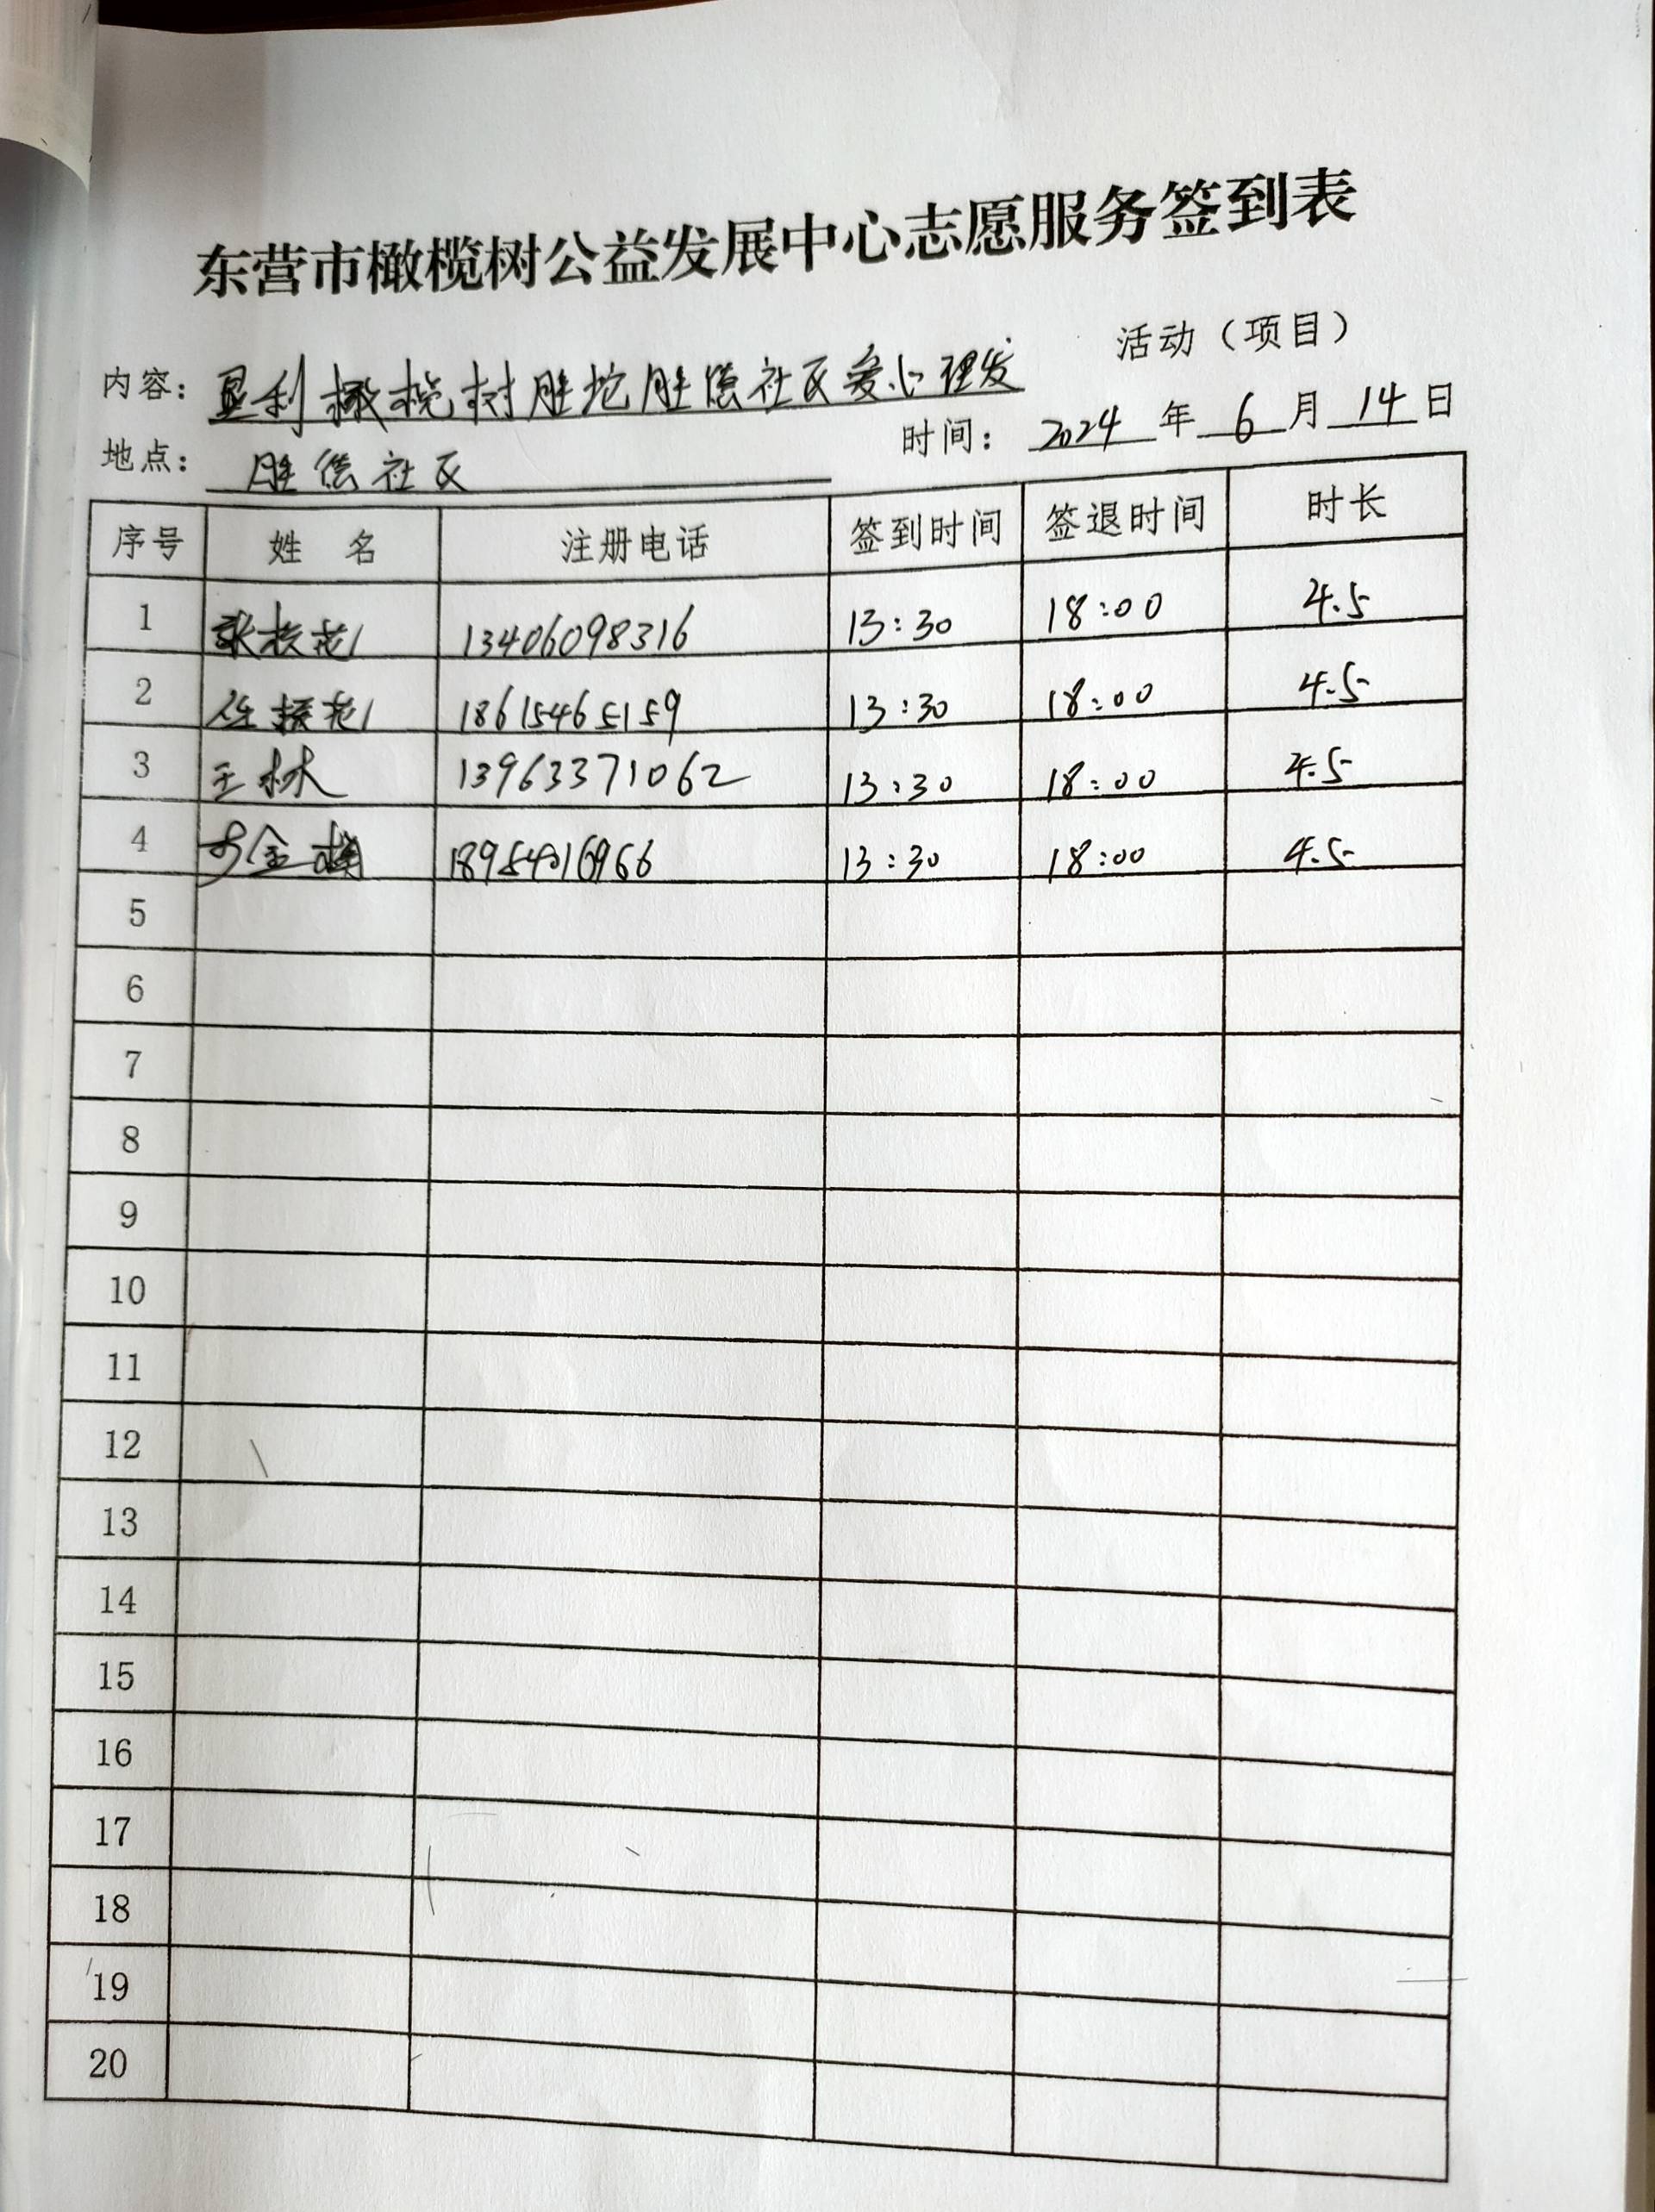 东营市橄榄树公益发展中心志愿服务签到表
内容: 垦利橄榄树胜坨胜偿社区爱心理发 活动（项目）
地点: 胜偿社区 时间: 2024 年 6 月 14 日
序号 姓 名 注册电话 签到时间 签退时间 时长
1 张 13406098316 13:30 18:00 4.5
2 任振花 18615465159 13:30 18:00 4.5
3 王林 13963371062 13:30 18:00 4.5
4 金 13:30 18:00 4.5
5
6
7
8
9
10
11
12
13
14
15
16
17
18
19
20